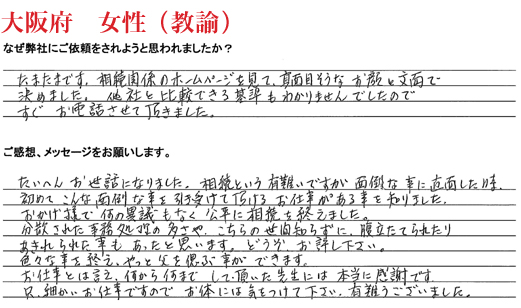 大阪府　女性（教論）
なぜ弊社にご依頼をされようと思われましたか？
たまたまです。相続関係のホームページを見て、真面目そうなお顔と文面で
決めました。他社と比較できる基準もわかりませんでしたので
すぐ お電話させて頂きました。
ご感想、メッセージをお願いします。
たいへんお世話になりました。相続という有難いですが面倒な事に直面した時、
初めてこんな面倒な事を引き受けて頂けるお仕事がある事を知りました。
おかげ様で何の異議もなく公平に相続を終えました。
分散された事務処理の多さや、こちらの世間知らずに、腹立てられたり
あきれられた事もあったと思います。どうぞ お許し下さい。
色々な事を終え、やっと父を偲ぶ事ができます。
お仕事とは言え、何から何まで して頂いた先生には 本当に感謝です。
只、細かいお仕事ですので お体には気をつけて下さい。有難うございました。